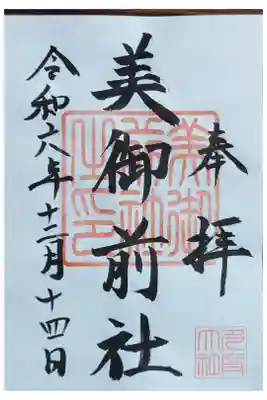 奉拝
美御前社
令和六年十二月十四日